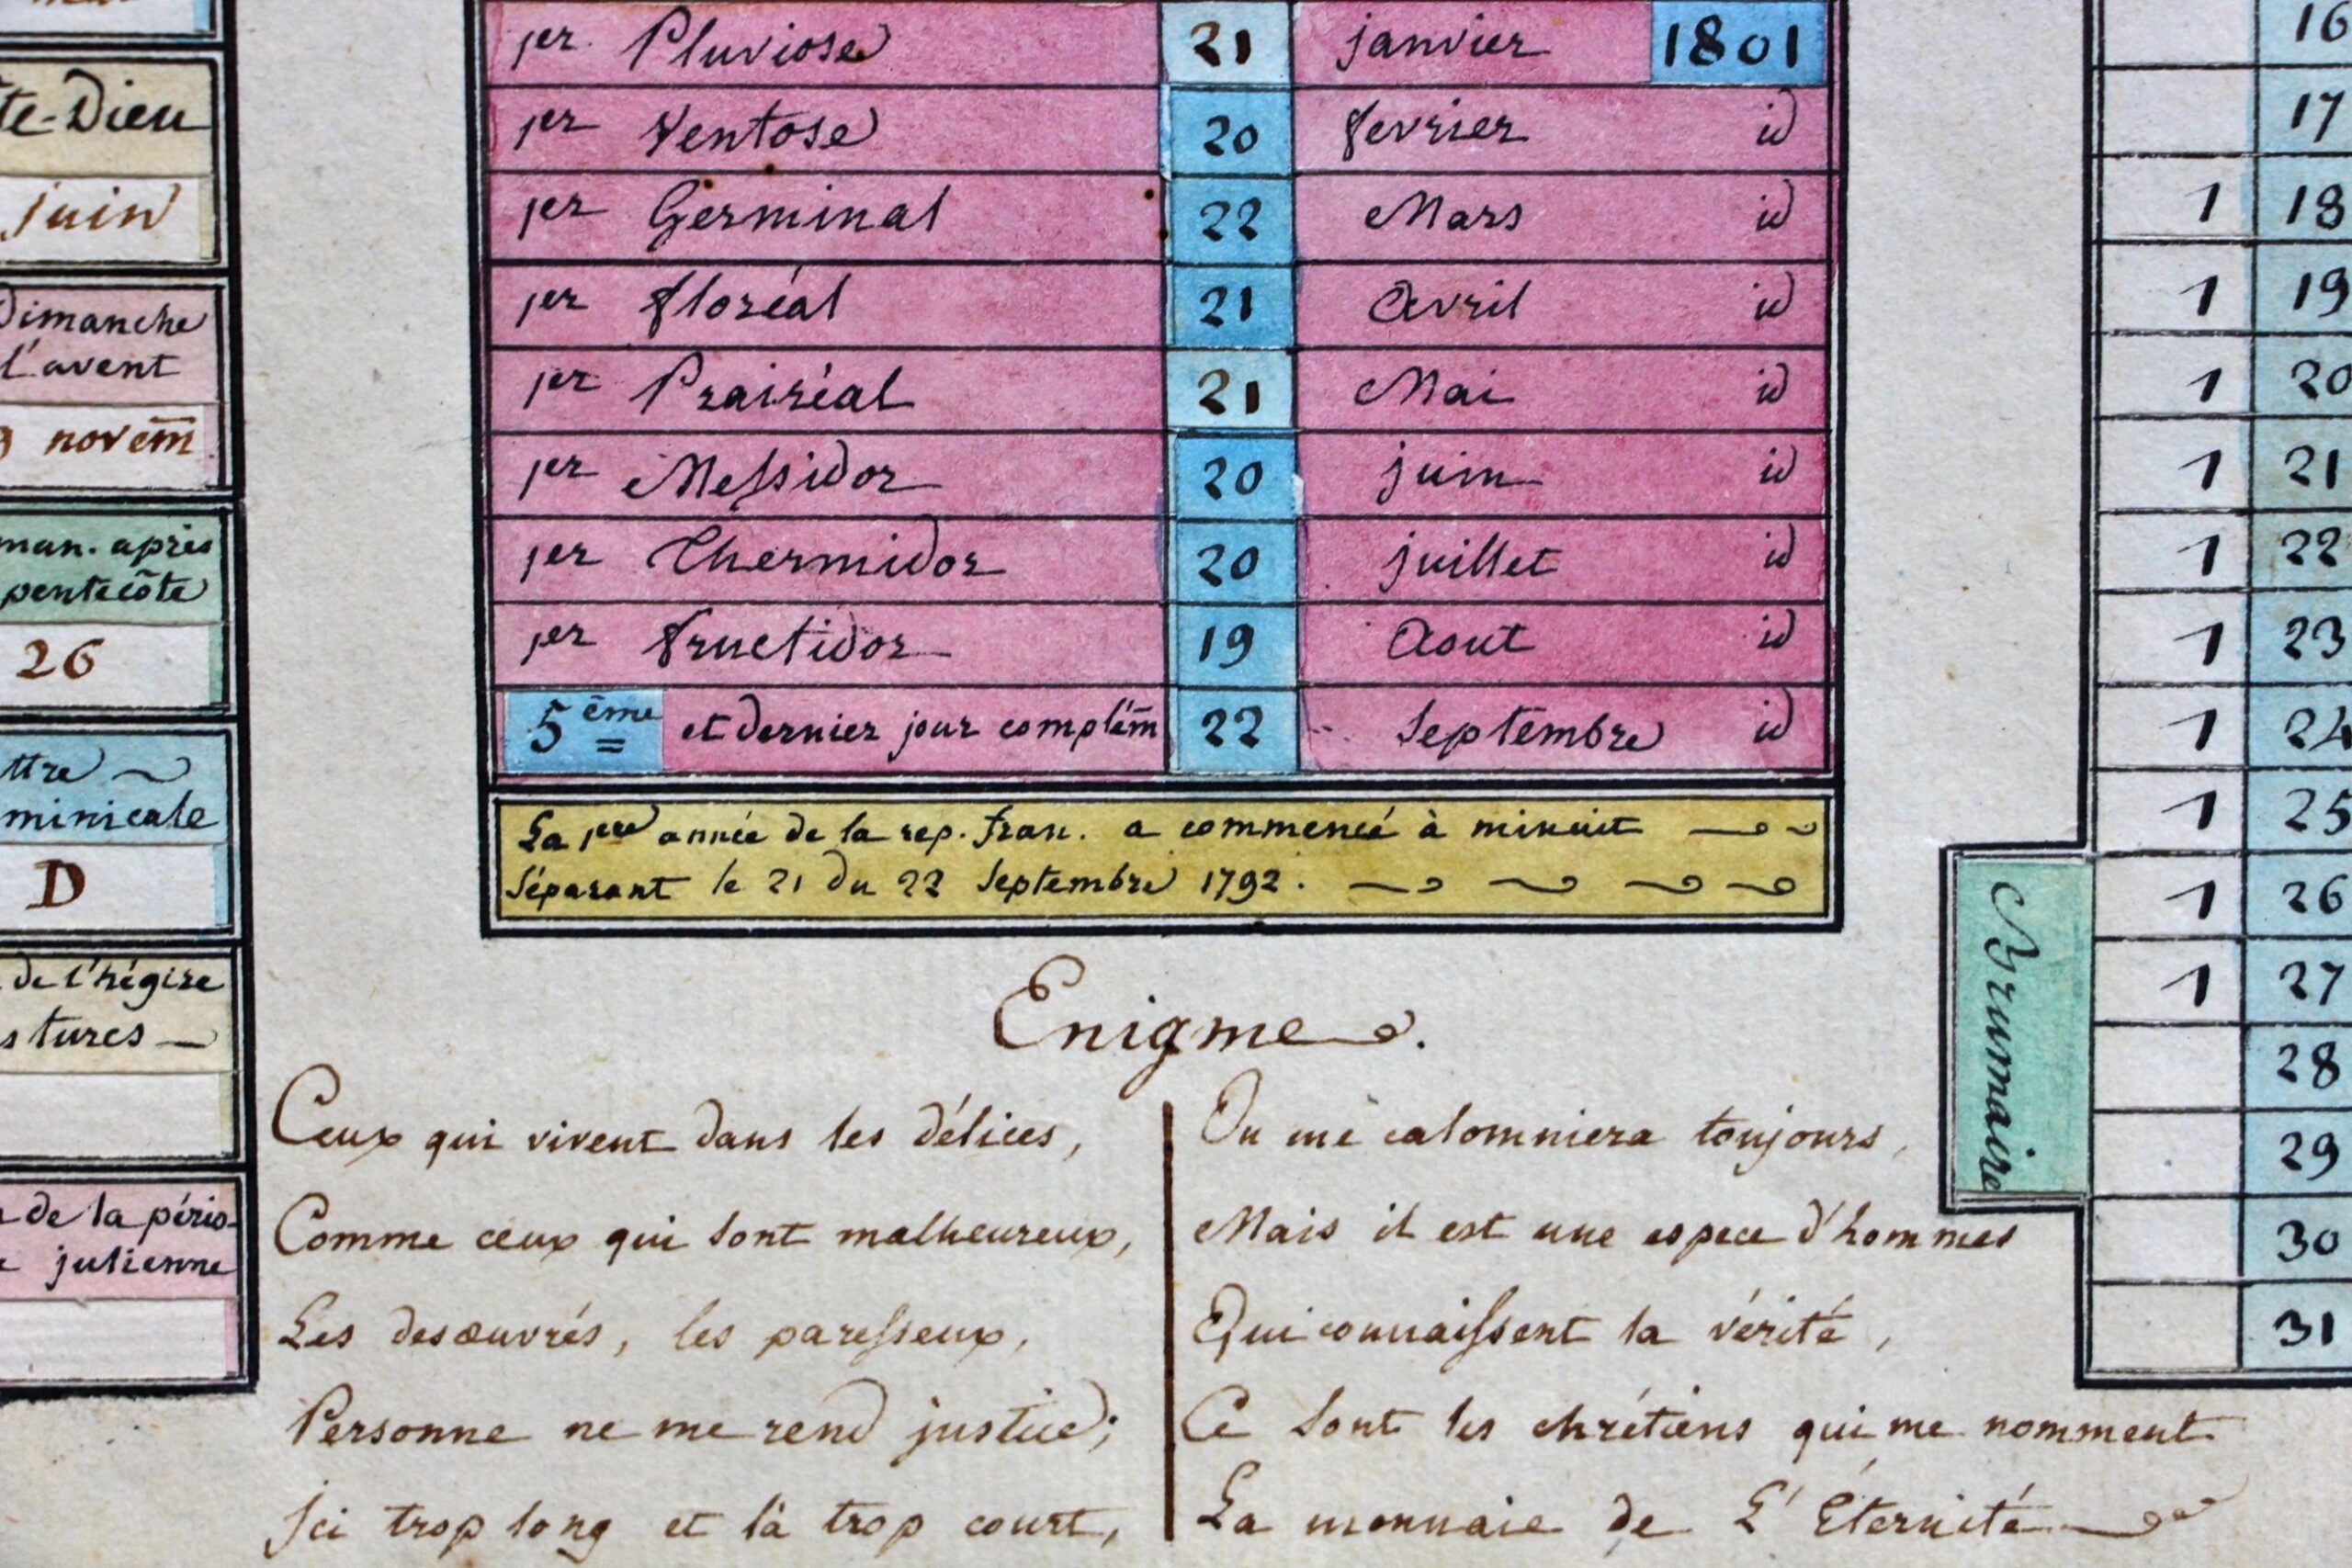 te-Dieu
juin
Dimanche
l'avent
novem̄
man. après
pentecôte
26
ttre
minicale
D
de l'hégire
s turcs
de la pério-
julienne
1er Pluviose 21 janvier 1801
1er Ventose 20 fevrier id
1er Germinal 22 Mars id
1er floréal 21 Avril id
1er Prairéal 21 Mai id
1er Messidor 20 juin id
1er Thermidor 20 juillet id
1er fructidor 19 Aout id
5ème et dernier jour complém̄ 22 Septembre id
La 1ere année de la rep. fran. a commencé à minuit
séparant le 21 du 22 Septembre 1792.
Enigme.
Ceux qui vivent dans les délices,
Comme ceux qui sont malheureux,
Les desœuvrés, les paresseux,
Personne ne me rend justice;
Ici trop long et là trop court,
On me calomniera toujours,
Mais il est une espece d'hommes
Qui connaissent la vérité,
Ce sont les chrétiens qui me nomment
La monnaie de L'Éternité
Brumaire
16
17
1 18
1 19
1 20
1 21
1 22
1 23
1 24
1 25
1 26
1 27
28
29
30
31